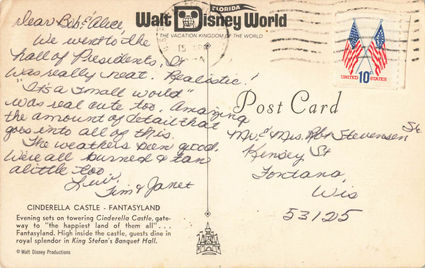 Dear Bob & Alice,
We went to the
hall of Presidents. It
was really neat. Realistic!
"It's a Small world"
was real cute too. Amazing
the amount of detail that
goes into all of this.
The weathers been good.
We're all burned & tan
a little too.
Luv,
Jim & Janet
CINDERELLA CASTLE - FANTASYLAND
Evening sets on towering Cinderella Castle, gate-
way to "the happiest land of them all" ...
Fantasyland. High inside the castle, guests dine in
royal splendor in King Stefan's Banquet Hall.
© Walt Disney Productions
FLORIDA
Walt Disney World
THE VACATION KINGDOM OF THE WORLD
15
UNITED 10c STATES
Post Card
Mr. & Mrs. Robt Stevenson Sr.
Kinsey St
Fontana,
Wis
53125